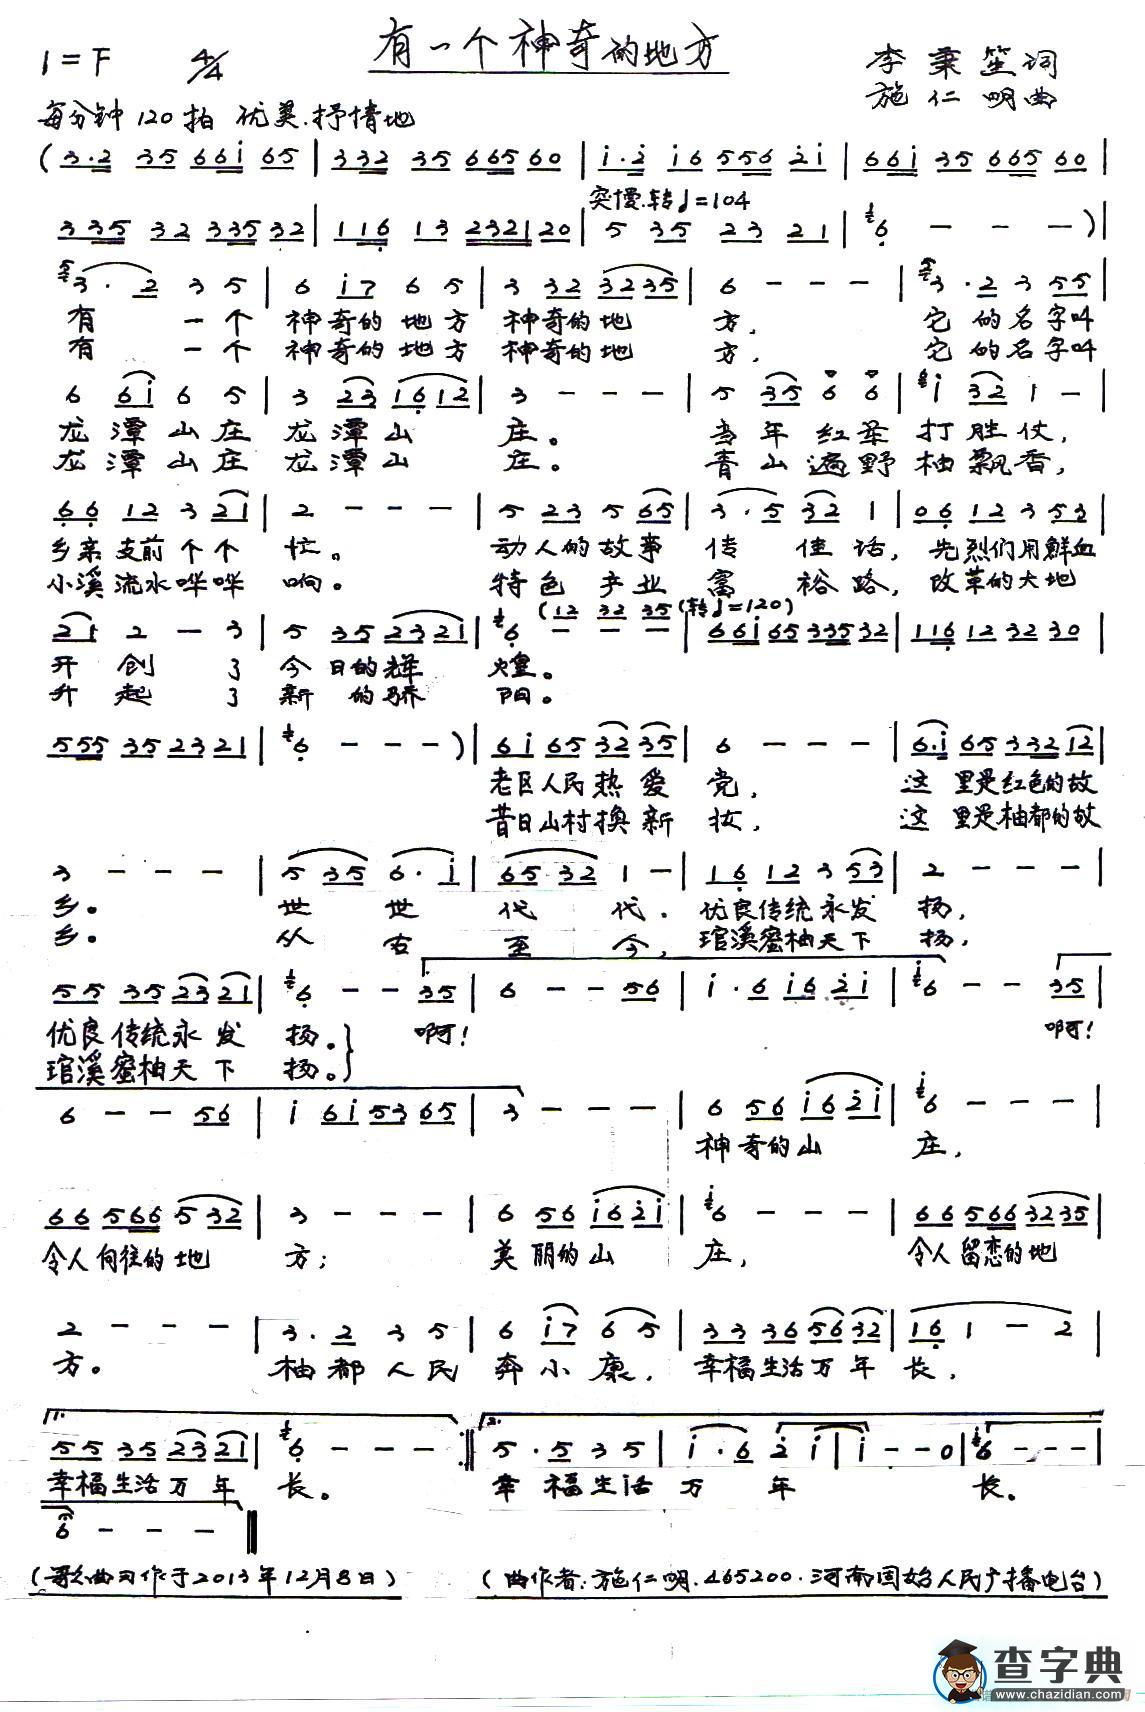 有一个神奇的地方
1=F 4/4 李秉笙词
每分钟120拍 优美.抒情地 施仁明曲
(3·2 35 66i 65 | 332 35 665 60 | i·2 i6 556 2i | 66i 35 665 60 |
突慢.转♩=104
335 32 335 32 | 116 13 2321 20 | 5 35 23 21 | 6 - - - ) |
3· 2 3 5 | 6 i7 6 5 | 3 32 3235 | 6 - - - | 3·2 3 55 |
有 一个 神奇的地方 神奇的地 方, 它的名字叫
有 一个 神奇的地方 神奇的地 方, 它的名字叫
6 6i 6 5 | 3 23 1612 | 3 - - - | 5 35 6 6 | i 32 1 - |
龙潭山庄 龙潭山 庄。 当年红军 打胜仗,
龙潭山庄 龙潭山 庄。 青山遍野 柚飘香,
66 12 3 21 | 2 - - - | 5 23 5 65 | 3·5 32 1 | 06 12 3 53 |
乡亲支前个个 忙。 动人的故事 传佳话, 先烈们用鲜血
小溪流水哗哗 响。 特色产业富裕路, 改革的大地
(12 32 35 (转♩=120)
21 2 - 3 | 5 35 2321 | 6 - - - | 66i 65 335 32 | 116 12 32 30 |
开创了 今日的辉 煌。
升起了 新的骄 阳。
555 35 23 21 | 6 - - - ) | 6i 65 32 35 | 6 - - - | 6·i 65 332 12 |
老区人民热爱 党, 这里是红色的故
昔日山村换新 妆, 这里是柚都的故
3 - - - | 5 35 6·i | 65 32 1 - | 16 12 3 53 | 2 - - - |
乡。 世世代代. 优良传统永发 扬,
乡。 从古至今, 琯溪蜜柚天下 扬,
55 35 23 21 | 6 - - 35 | 6 - - 56 | i·6 i6 2i | 6 - - 35 |
优良传统永发 扬。 啊! 啊!
琯溪蜜柚天下 扬。
6 - - 56 | i 6i 53 65 | 3 - - - | 6 56 i6 2i | 6 - - - |
神奇的山 庄,
66 566 5 32 | 3 - - - | 6 56 i6 2i | 6 - - - | 66 566 32 35 |
令人向往的地 方; 美丽的山 庄, 令人留恋的地
2 - - - | 3·2 3 5 | 6 i7 6 5 | 33 36 56 32 | 16 1 - 2 |
方。 柚都人民 奔小康, 幸福生活万年 长,
1. 2.
55 35 23 21 | 6 - - - :‖ 5·5 3 5 | i·6 2 i | i - - 0 | 6 - - - |
幸福生活万年 长。 幸福生活 万年 长。
6 - - - ‖
(歌曲习作于2013年12月8日) (曲作者:施仁明.465200.河南固始人民广播电台)
查字典
www.chazidian.com